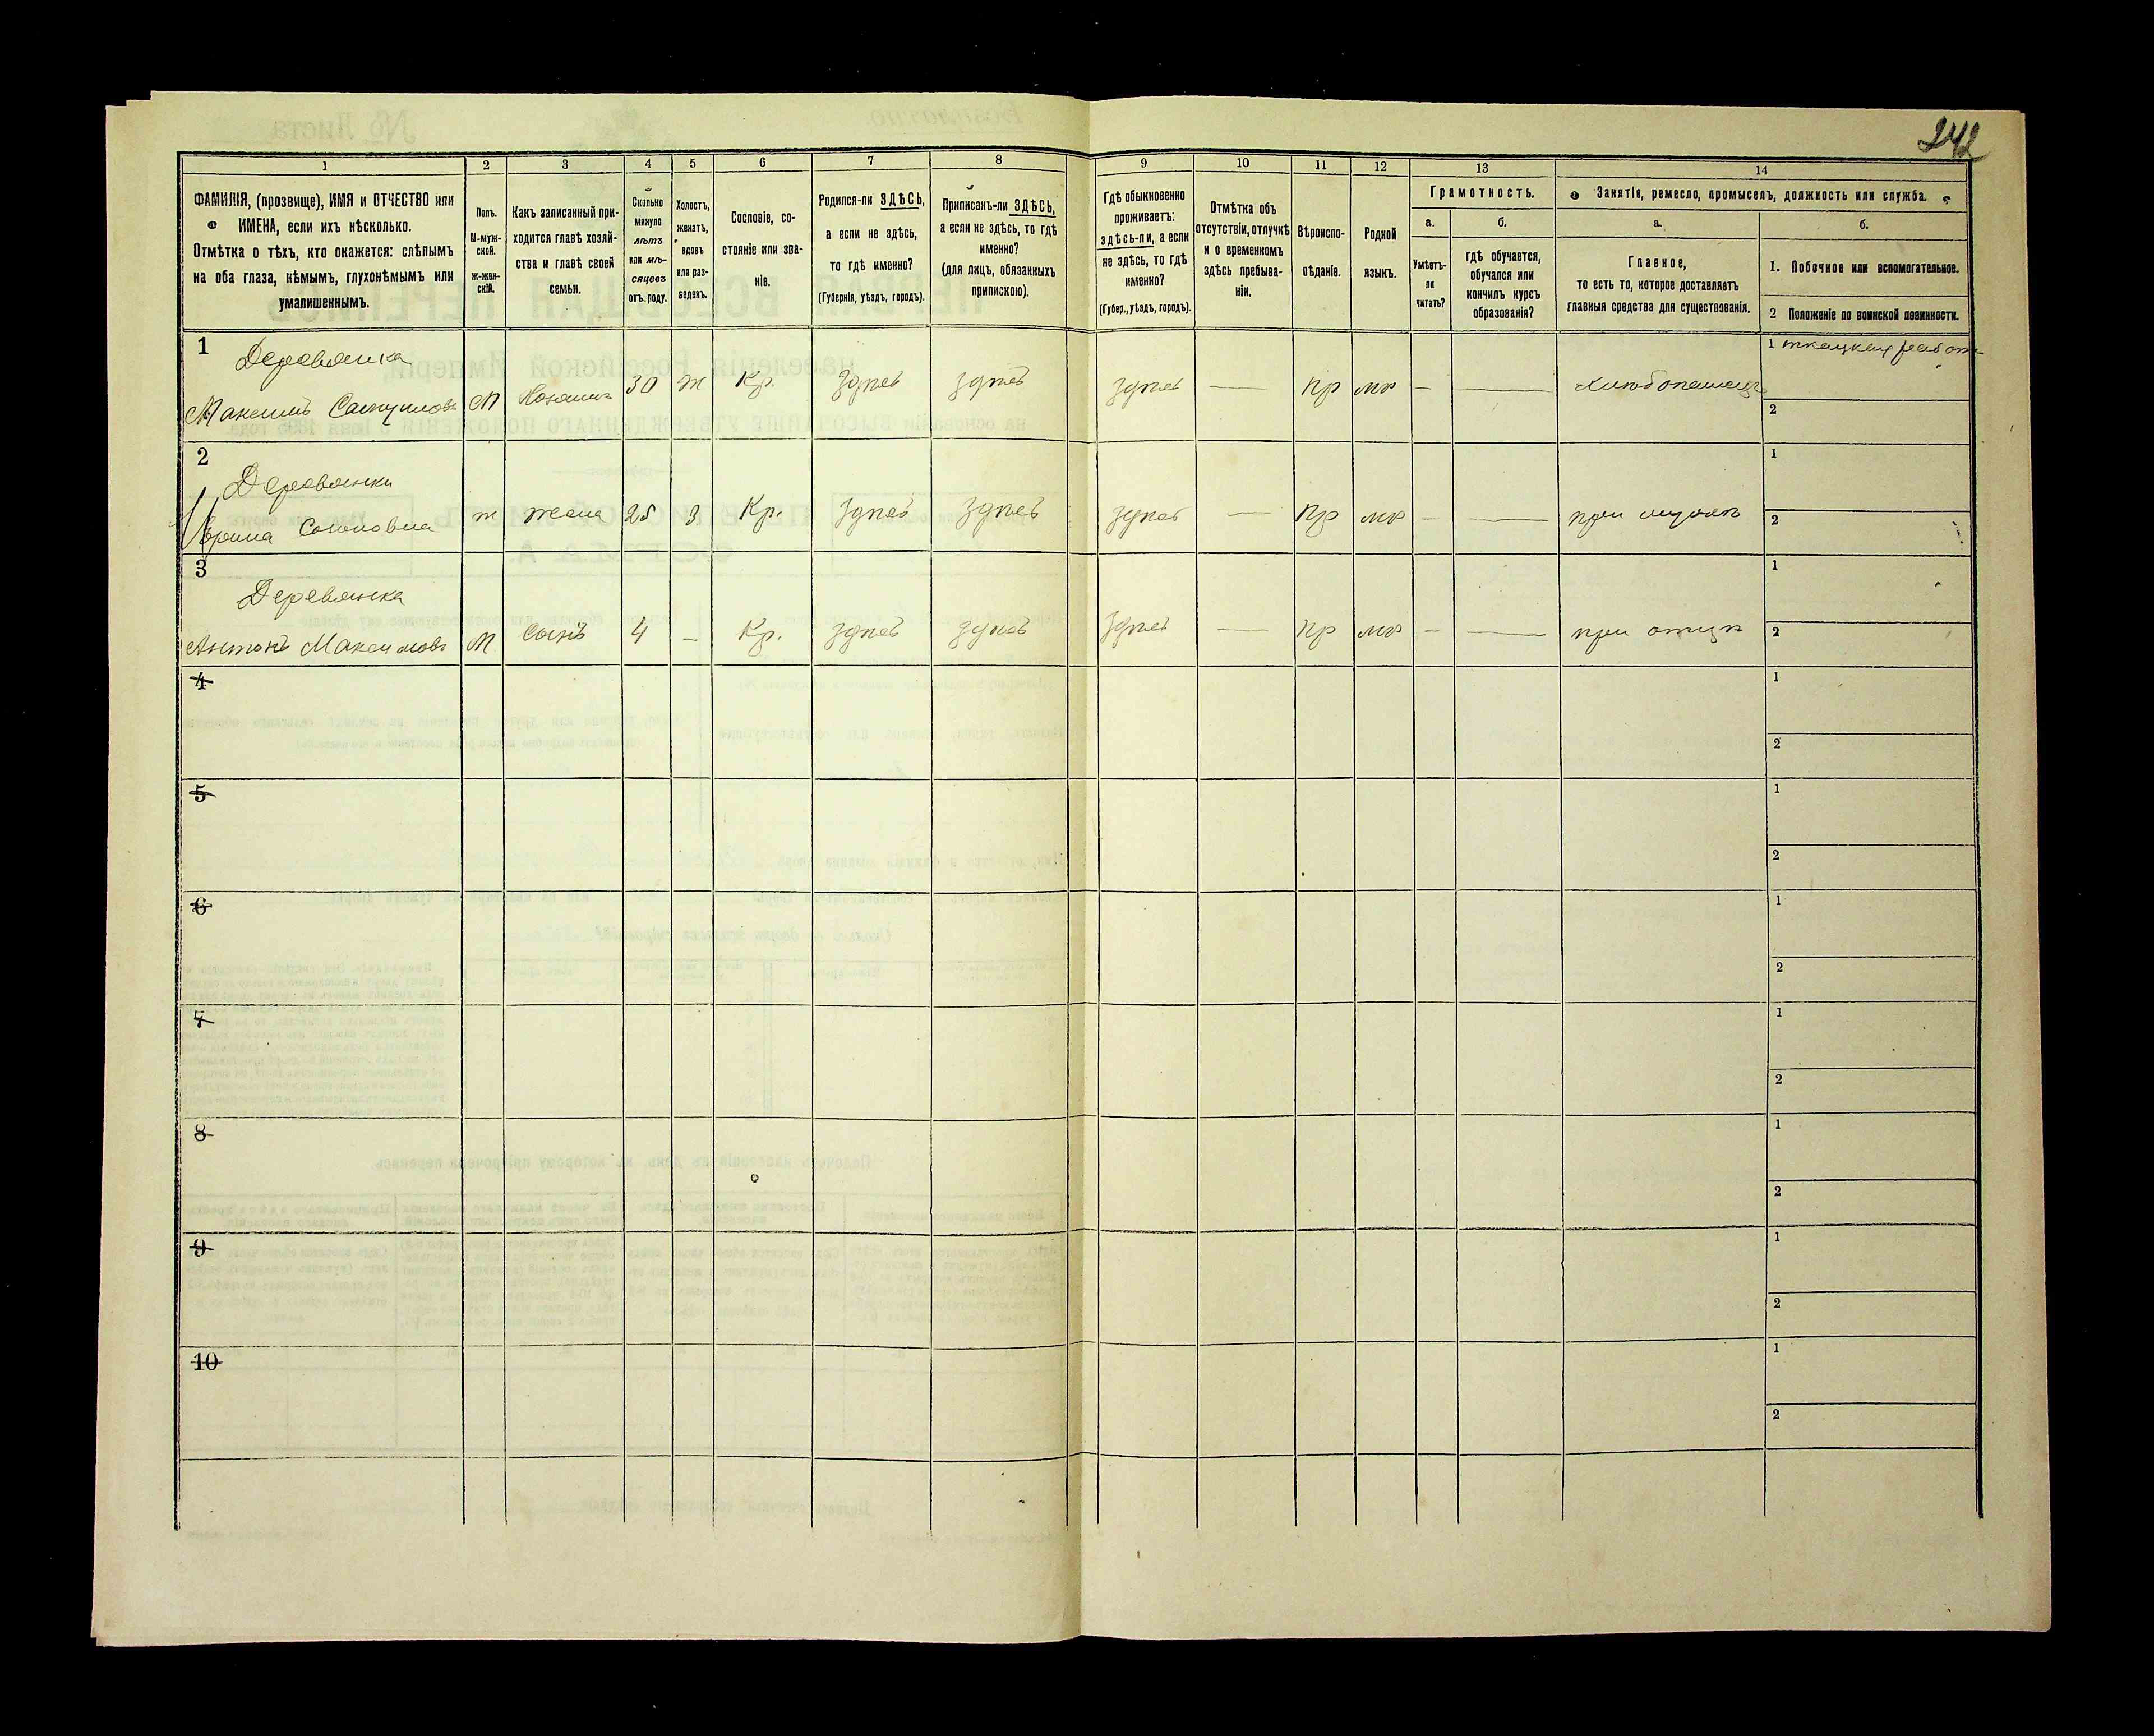 242
1 2 3 4 5 6 7 8 9 10 11 12 13 14
ФАМИЛІЯ, (прозвище), ИМЯ и ОТЧЕСТВО или
ИМЕНА, если ихъ нѣсколько.
Отмѣтка о тѣхъ, кто окажется: слѣпымъ
на оба глаза, нѣмымъ, глухонѣмымъ или
умалишеннымъ.
Полъ.
М-муж-
ской.
Ж-жен-
скій.
Какъ записанный при-
ходится главѣ хозяй-
ства и главѣ своей
семьи.
Сколько
минуло
лѣтъ
или мѣ-
сяцевъ
отъ роду.
Холостъ,
женатъ,
вдовъ
или раз-
веденъ.
Сословіе, со-
стояніе или зва-
ніе.
Родился-ли ЗДѢСЬ,
а если не здѣсь,
то гдѣ именно?
(Губернія, уѣздъ, городъ).
Приписанъ-ли ЗДѢСЬ,
а если не здѣсь, то гдѣ
именно?
(для лицъ, обязанныхъ
припискою).
Гдѣ обыкновенно
проживаетъ:
здѣсь-ли, а если
не здѣсь, то гдѣ
именно?
(Губер., уѣздъ, городъ).
Отмѣтка объ
отсутствіи, отлучкѣ
и о временномъ
здѣсь пребыва-
ніи.
Вѣроиспо-
вѣданіе.
Родной
языкъ.
Грамотность.
а.
Умѣетъ-
ли
читать?
б.
гдѣ обучается,
обучался или
кончилъ курсъ
образованія?
Занятія, ремесло, промыселъ, должность или служба.
а.
Главное,
то есть то, которое доставляетъ
главныя средства для существованія.
б.
1. Побочное или вспомогательное.
2 Положеніе по воинской повинности.
1 Деревянка
Максимъ М Хозяинъ 30 ж Кр. здѣсь здѣсь здѣсь — пр мр — — хлѣбопашецъ 1 ткацкая
2
2 Деревянки
ж жена 25 З Кр. здѣсь здѣсь здѣсь — пр мр — — при мужѣ 1
2
3 Деревянка
Антонъ Максимовъ М сынъ 4 — Кр. здѣсь здѣсь здѣсь — пр мр — — при отцѣ 1
2
4 1
2
5 1
2
6 1
2
7 1
2
8 1
2
9 1
2
10 1
2